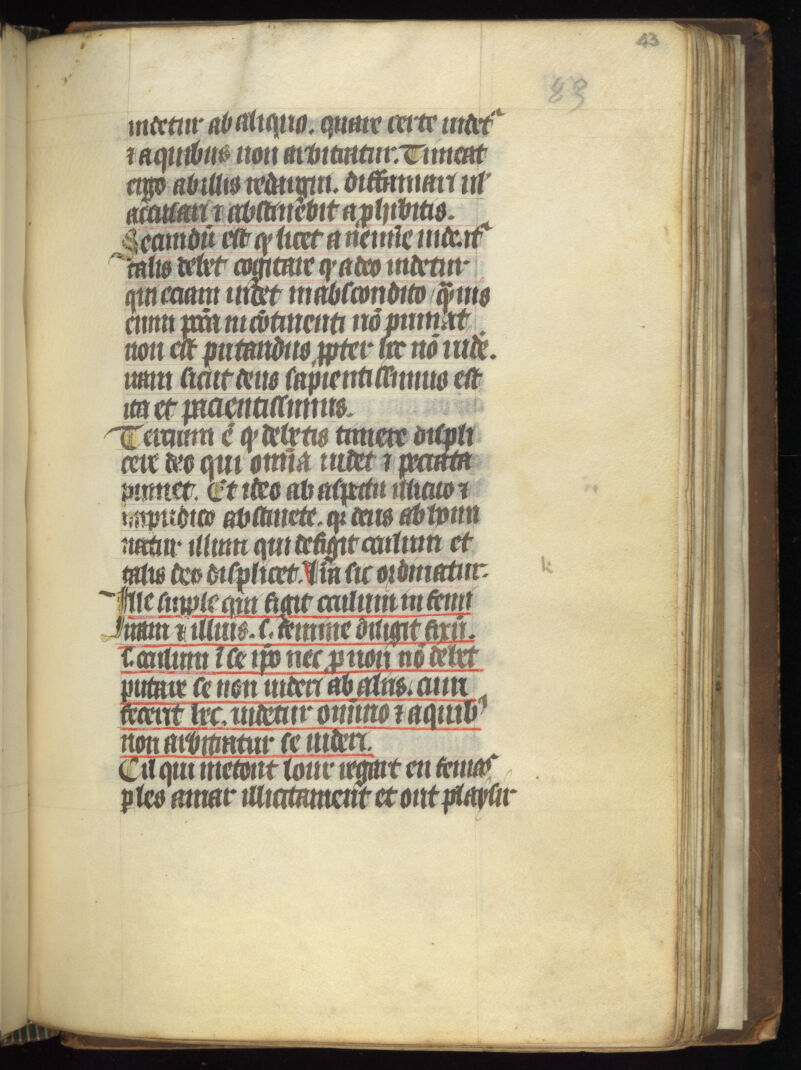 43
83
uidetur ab aliquo. quare certe uidet᷑
⁊ a quibus non arbitratur. Timeat
ergo ab illis redargui. diffamari ul᷑
accusari ⁊ abstinebit a ꝓhibitis.
Secundū est ꝙ licet a nemīe uideret᷑
talis debet cogitare ꝙ a deo uidetur
qui eciam uidet in abscondito
cum in cōtinenti nō puniat
non est putandus ꝓpter hec nō uidē.
nam sicut deus sapientissimus est
ita et pacientissimus.
Tercium ē ꝙ debetis timere displi
cere deo qui omnia uidet ⁊ peccata
puniet. Et ideo ab aspectu illicito ⁊
impudico abstinete. qꝫ deus abhomi
natur illum qui defigit oculum et
talis deo displicet. līa sic ordinatur.
k
Ille supple qui figit oculum in femi
nam ⁊ illius .s. femine diligit fixū.
s. oculum ī se ip̄o nec nō debet
putare se non uideri ab aliis. cum
fecerit hec. uidetur omnino ⁊ a quibꝰ
non arbitratur se uideri.
Cil qui metont lour regart en femas
ꝑ les amar illicitament et ont playsir